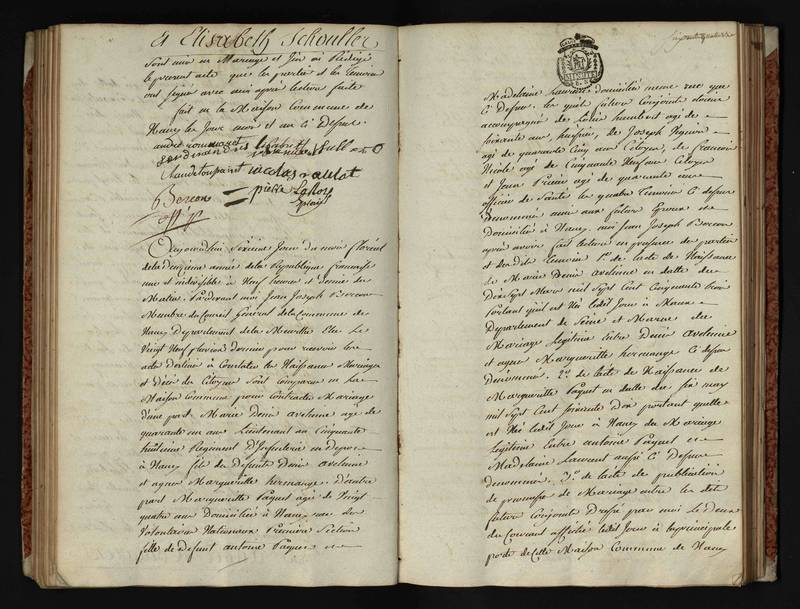 et Elisabeth Schouller
Sont unis en Mariage et J'en ai Rédigé
le present acte que les parties et les temoins
ont signé avec moi après lecture faite
fait en la Maison Commune de
Nancy les Jour mois et an Ci Dessus
nicolas raulot
pierre LaRoy
Bercon
off. p.
Aujourd'huy Sixieme Jour du mois floréal
de la Deuxieme année de la Republique françaises
une et indivisible à Neuf heures et demie du
Matin. Pardevant moi Jean Joseph Bercon
Membre du Conseil General de la Commune de
Nancy Departement de la Meurthe Elu Le
Vingt Neuf pluviose dernier pour recevoir les
actes Destinés à Constater les Naissances Mariages
et Décès des Citoyens Sont comparus en La
Maison Commune pour Contracter Mariage
d'une part Marie Denis avelenne agé de
quarante un ans Lieutenant au Cinquante
huitieme Regiment D'Infanterie en depost
à Nancy fils des Defunts Denis avelenne
et agnes Margueritte hermange. D'autre
part Margueritte Paquet agée de Vingt
quatre ans Domiciliée à Nancy rue des
Volontaires Nationaux Premiere Section
fille de defunt antoine Paquet et de
Madelaine Laurent domiciliée meme rue que
Ci Dessus. les quels futurs Conjoints etoient
accompagnés de Louis humbert agé de
soixante ans, huissier, de Joseph
agé de quarante Cinq ans Citoyen, de francois
Nicole agé de Cinquante Neuf ans Citoyen
et Jean agé de quarante
officier de Santé les quatre temoins Ci dessus
Denommés amis aux futurs Epoux et
Domiciliés à Nancy. moi Jean Joseph Bercon
après avoir fait lecture en presence des parties
et des dits temoins 1.º de l'acte de Naissance
de Marie Denis avelenne en datte du
Dix Sept Mars mil Sept Cent Cinquante trois
Portant qu'il est Né ledit Jour à Meaux
Departement de Seine et Marne du
Mariage Legitime Entre Denis avelenne
et agnes Margueritte hermange Ci dessus
Denommés. 2.º de l'acte de Naissance de
Margueritte Paquet en datte du six may
mil Sept Cent soixante Dix portant quelle
est Née ledit Jour à Nancy du Mariage
Legitime Entre antoine Paquet et
Madelaine Laurent aussi Ci Dessus
denommés. 3.º de l'acte de publication
de promesse de Mariage entre les dits
futurs Conjoints Dressé par moi Le Deux
du Courant affiché ledit Jour à la principale
porte de Cette Maison Commune de Nancy